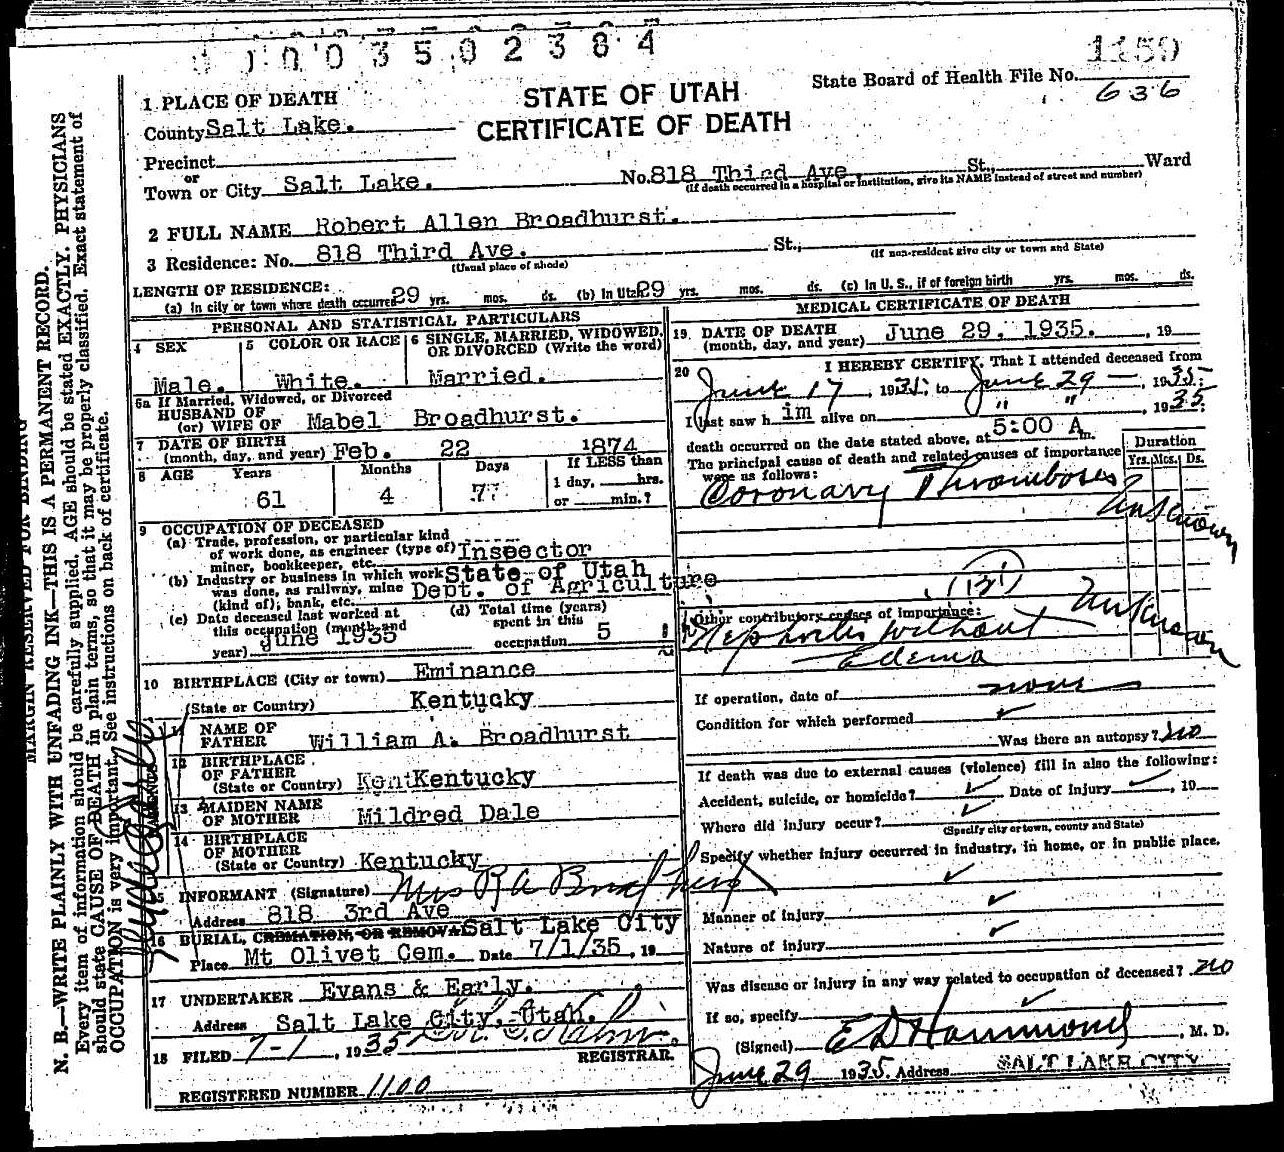 1 0 0 3 5 0 2 3 8 4
1159
State Board of Health File No.
636
STATE OF UTAH
CERTIFICATE OF DEATH
1 PLACE OF DEATH
County Salt Lake.
Precinct
or
Town or City Salt Lake. No. 818 Third Ave. St., Ward
(If death occurred in a hospital or institution, give its NAME instead of street and number)
2 FULL NAME Robert Allen Broadhurst.
3 Residence: No. 818 Third Ave. St.,
(Usual place of abode) (If non-resident give city or town and State)
LENGTH OF RESIDENCE:
(a) In city or town where death occurred 29 yrs. mos. ds. (b) In Utah 29 yrs. mos. ds. (c) In U. S., if of foreign birth yrs. mos. ds.
PERSONAL AND STATISTICAL PARTICULARS
4 SEX
Male.
5 COLOR OR RACE
White.
6 SINGLE, MARRIED, WIDOWED,
OR DIVORCED (Write the word)
Married.
6a If Married, Widowed, or Divorced
HUSBAND OF
(or) WIFE OF Mabel Broadhurst.
7 DATE OF BIRTH
(month, day, and year) Feb. 22 1874
8 AGE Years Months Days If LESS than
1 day, hrs.
or min.?
61 4 7
9 OCCUPATION OF DECEASED
(a) Trade, profession, or particular kind
of work done, as engineer (type of) Inspector
miner, bookkeeper, etc.
(b) Industry or business in which work State of Utah
was done, as railway, mine Dept. of Agriculture
(kind of); bank, etc.
(c) Date deceased last worked at (d) Total time (years)
this occupation (month and spent in this
year) June 1935 occupation 5
10 BIRTHPLACE (City or town) Eminance
(State or Country) Kentucky
11 NAME OF
FATHER William A. Broadhurst
12 BIRTHPLACE
OF FATHER
(State or Country) Kent Kentucky
13 MAIDEN NAME
OF MOTHER Mildred Dale
14 BIRTHPLACE
OF MOTHER
(State or Country) Kentucky
15 INFORMANT (Signature) Mrs R A Broadhurst
Address 818 3rd Ave
Salt Lake City
16 BURIAL, CREMATION, OR REMOVAL
Place Mt Olivet Cem. Date 7/1/35, 19
17 UNDERTAKER Evans & Early.
Address Salt Lake City, Utah.
18 FILED 7-1, 1935
REGISTRAR.
REGISTERED NUMBER 1100
MEDICAL CERTIFICATE OF DEATH
19 DATE OF DEATH
(month, day, and year) June 29, 1935. , 19
20 I HEREBY CERTIFY, That I attended deceased from
June 17, 1935, to June 29 —, 1935:
I last saw h im alive on " ", 1935:
death occurred on the date stated above, at 5:00 A m.
The principal cause of death and related causes of importance
were as follows:
Duration
Yrs. Mos. Ds.
Coronary Thromboses
Unknown
(131)
Other contributory causes of importance:
Nephritis without
Edema
Unknown
If operation, date of none
Condition for which performed
Was there an autopsy? no
If death was due to external causes (violence) fill in also the following:
Accident, suicide, or homicide? Date of injury , 19
Where did injury occur?
(Specify city or town, county and State)
Specify whether injury occurred in industry, in home, or in public place.
Manner of injury
Nature of injury
Was disease or injury in any way related to occupation of deceased? no
If so, specify
(Signed) E D Hammond, M. D.
June 29 1935. Address SALT LAKE CITY
MARGIN RESERVED FOR BINDING
N. B.—WRITE PLAINLY WITH UNFADING INK—THIS IS A PERMANENT RECORD.
Every item of information should be carefully supplied. AGE should be stated EXACTLY. PHYSICIANS
should state CAUSE OF DEATH in plain terms, so that it may be properly classified. Exact statement of
OCCUPATION is very important. See instructions on back of certificate.